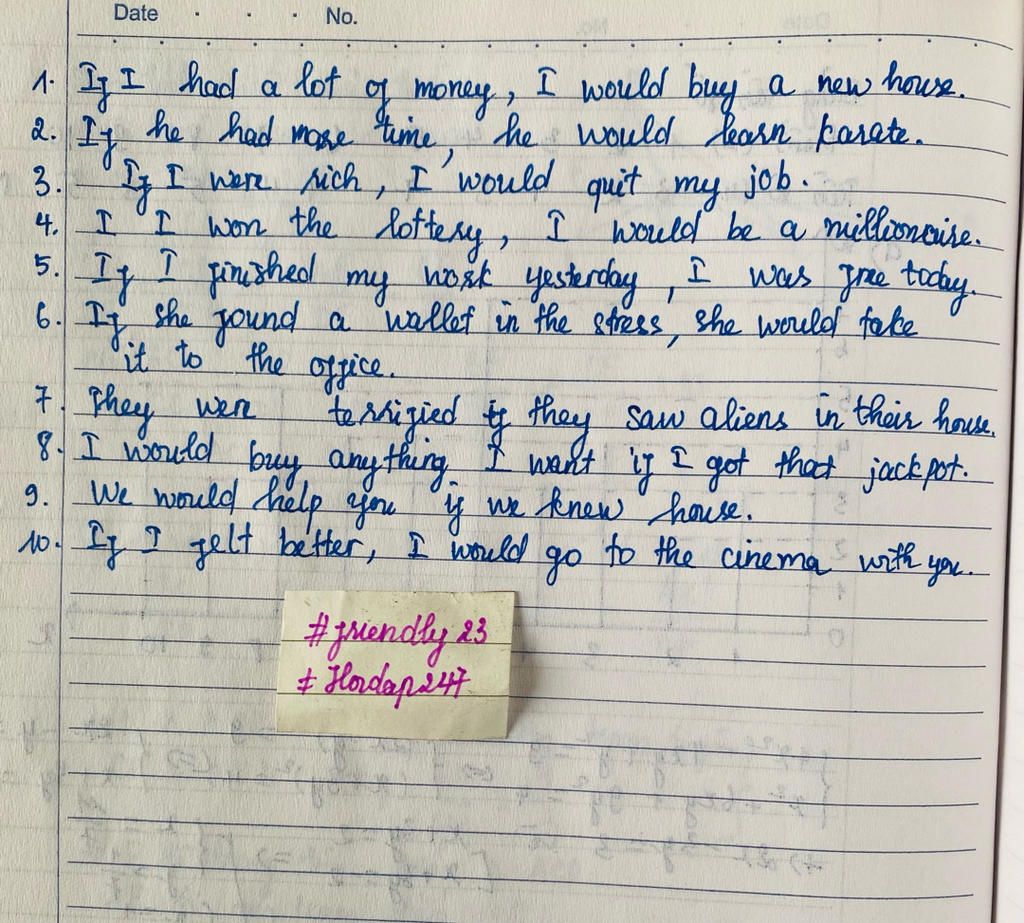 Date . . . No.
1. If I had a lot of money, I would buy a new house.
2. If he had more time, he would learn karate.
3. If I were rich, I would quit my job.
4. I I won the lottery, I would be a millionaire.
5. If I finished my work yesterday, I was free today.
6. If she found a wallet in the stress, she would take
it to the office.
7. They were terrified if they saw aliens in their house.
8. I would buy anything I want if I got that jackpot.
9. We would help you if we knew house.
10. If I felt better, I would go to the cinema with you.
#friendly23
# Hoidap247